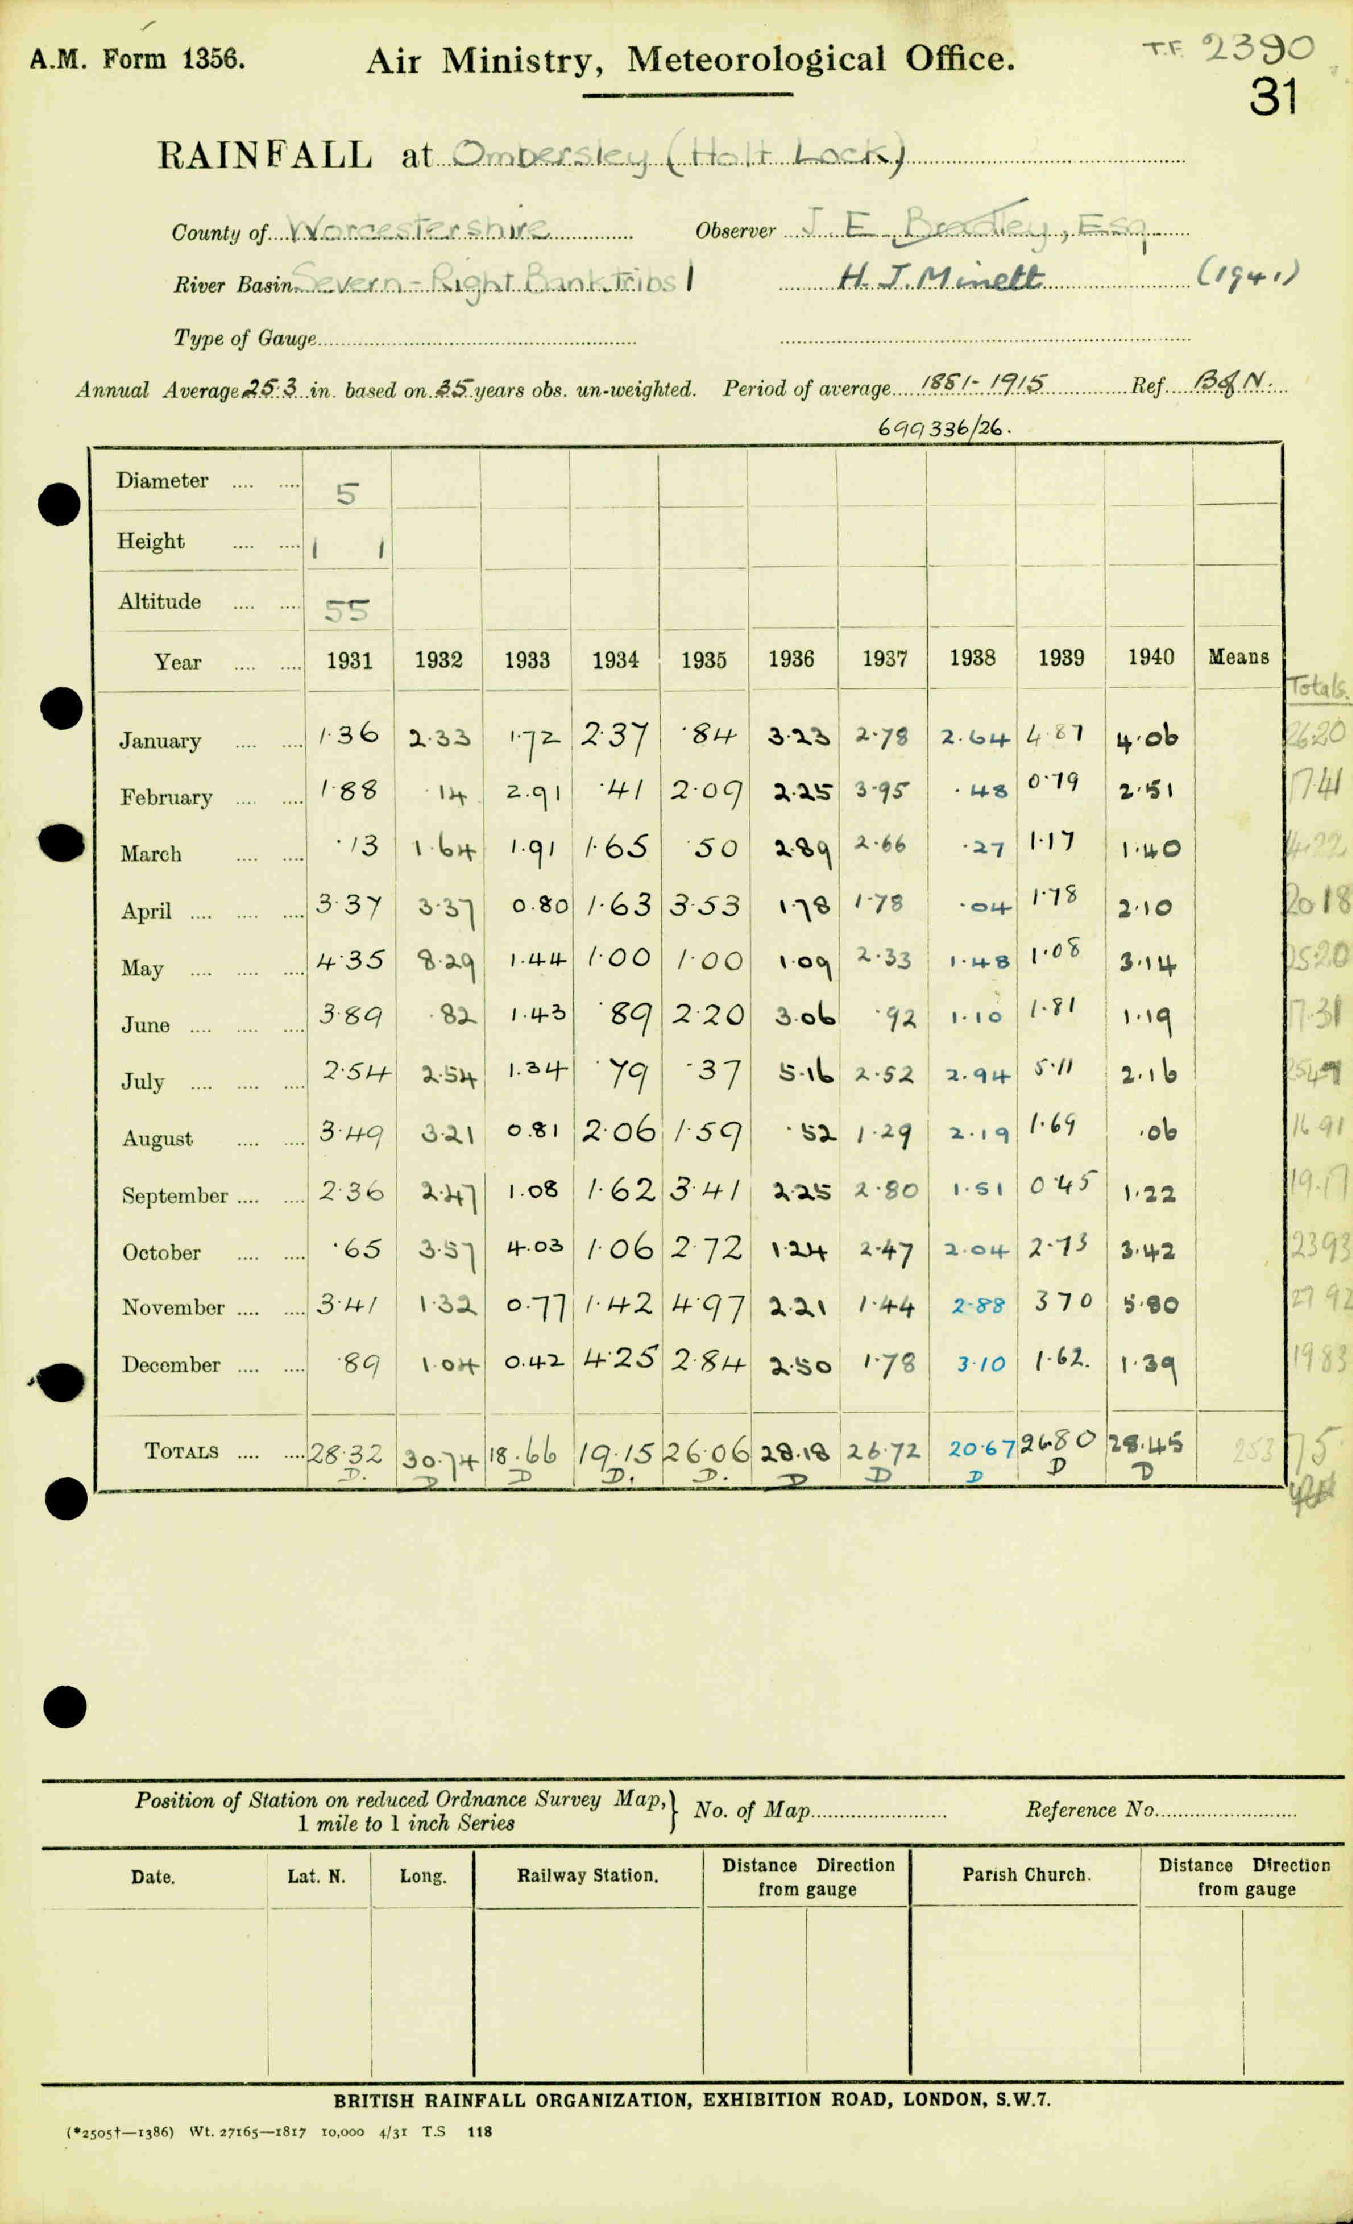 A.M. Form 1356. Air Ministry, Meteorological Office. T.F. 2390
31
RAINFALL at Ombersley (Holt Lock)
County of Worcestershire Observer J. E. Bradley, Esq.
River Basin Severn - Right Bank Tribs 1 H. J. Minett (1941)
Type of Gauge
Annual Average 25.3 in. based on 35 years obs. un-weighted. Period of average 1881-1915 Ref. B of N.
699336/26.
Diameter .... .... 5
Height .... .... 1 1
Altitude .... .... 55
Year .... .... 1931 1932 1933 1934 1935 1936 1937 1938 1939 1940 Means
Totals.
January .... .... 1.36 2.33 1.72 2.37 .84 3.23 2.78 2.64 4.87 4.06 26.20
February .... .... 1.88 .14 2.91 .41 2.09 2.25 3.95 .48 0.79 2.51 17.41
March .... .... .13 1.64 1.91 1.65 .50 2.89 2.66 .27 1.17 1.40 14.22
April .... .... .... 3.37 3.37 0.80 1.63 3.53 1.78 1.78 .04 1.78 2.10 20.18
May .... .... .... 4.35 8.29 1.44 1.00 1.00 1.09 2.33 1.48 1.08 3.14 25.20
June .... .... .... 3.89 .82 1.43 .89 2.20 3.06 .92 1.10 1.81 1.19 17.31
July .... .... .... 2.54 2.54 1.34 .79 .37 5.16 2.52 2.94 5.11 2.16 25.47
August .... .... 3.49 3.21 0.81 2.06 1.59 .52 1.29 2.19 1.69 .06 16.91
September .... .... 2.36 2.47 1.08 1.62 3.41 2.25 2.80 1.51 0.45 1.22 19.17
October .... .... .65 3.57 4.03 1.06 2.72 1.24 2.47 2.04 2.73 3.42 23.93
November .... .... 3.41 1.32 0.77 1.42 4.97 2.21 1.44 2.88 3 70 5.80 27 92
December .... .... .89 1.04 0.42 4.25 2.84 2.50 1.78 3.10 1.62. 1.39 19 83
TOTALS .... .... 28.32 30.74 18.66 19.15 26.06 28.18 26.72 20.67 26.80 28.45 253 75
D. D D D. D. D D D D D
Position of Station on reduced Ordnance Survey Map,} No. of Map Reference No.
1 mile to 1 inch Series
Date. Lat. N. Long. Railway Station. Distance Direction from gauge Parish Church. Distance Direction from gauge
BRITISH RAINFALL ORGANIZATION, EXHIBITION ROAD, LONDON, S.W.7.
(*2505†—1386) Wt. 27165—1817 10,000 4/31 T.S 118